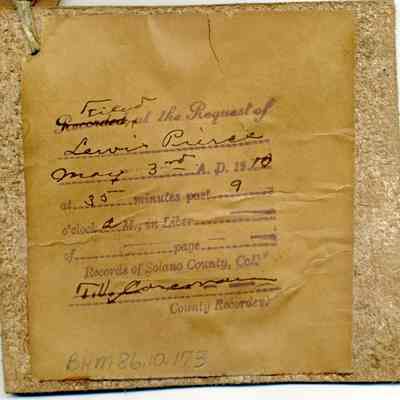 Filed
Recorded, at the Request of
Lewis Pierce
May 3rd A. D. 1910
at 35 minutes past 9
o'clock A M., in Liber
of page
Records of Solano County, Cal.
Corcoran
County Recorder.
BHM86.10.173